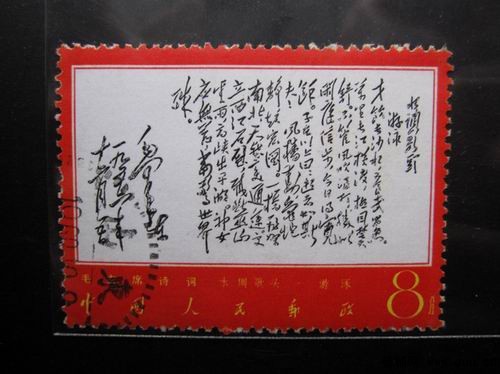 水调歌头
游泳
才饮长沙水，又食武昌鱼。
万里长江横渡，极目楚天
舒。不管风吹浪打，胜似
闲庭信步，今日得宽
馀。子在川上曰：逝者如斯
夫！风樯动，龟蛇
静，起宏图。一桥飞架
南北，天堑变通途。更
立西江石壁，截断巫山
云雨，高峡出平湖。神女
应无恙，当惊世界
殊。
毛泽东
一九五六年
毛主席诗词 水调歌头·游泳
中国人民邮政 8分